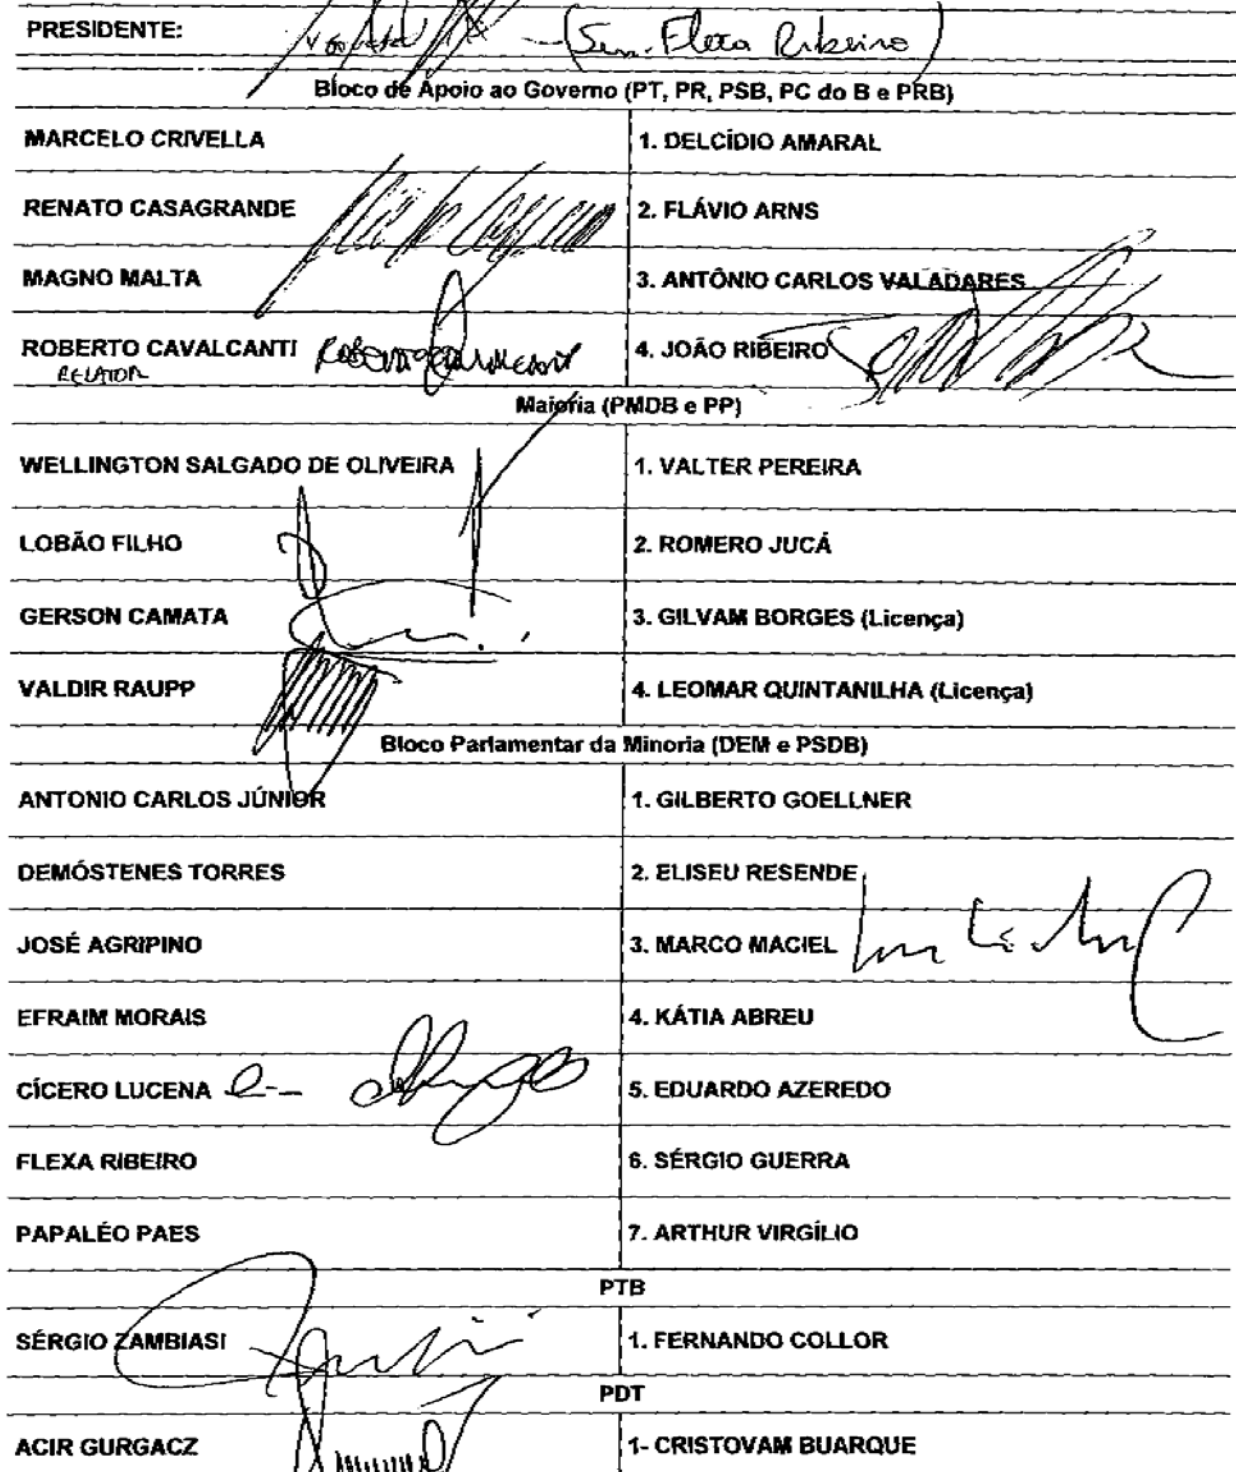 PRESIDENTE: (Sen. Flexa Ribeiro)
Bloco de Apoio ao Governo (PT, PR, PSB, PC do B e PRB)
MARCELO CRIVELLA 1. DELCÍDIO AMARAL
RENATO CASAGRANDE 2. FLÁVIO ARNS
MAGNO MALTA 3. ANTÔNIO CARLOS VALADARES
ROBERTO CAVALCANTI 4. JOÃO RIBEIRO
RELATOR
Maioria (PMDB e PP)
WELLINGTON SALGADO DE OLIVEIRA 1. VALTER PEREIRA
LOBÃO FILHO 2. ROMERO JUCÁ
GERSON CAMATA 3. GILVAM BORGES (Licença)
VALDIR RAUPP 4. LEOMAR QUINTANILHA (Licença)
Bloco Parlamentar da Minoria (DEM e PSDB)
ANTONIO CARLOS JÚNIOR 1. GILBERTO GOELLNER
DEMÓSTENES TORRES 2. ELISEU RESENDE
JOSÉ AGRIPINO 3. MARCO MACIEL
EFRAIM MORAIS 4. KÁTIA ABREU
CÍCERO LUCENA 5. EDUARDO AZEREDO
FLEXA RIBEIRO 6. SÉRGIO GUERRA
PAPALÉO PAES 7. ARTHUR VIRGÍLIO
PTB
SÉRGIO ZAMBIASI 1. FERNANDO COLLOR
PDT
ACIR GURGACZ 1- CRISTOVAM BUARQUE